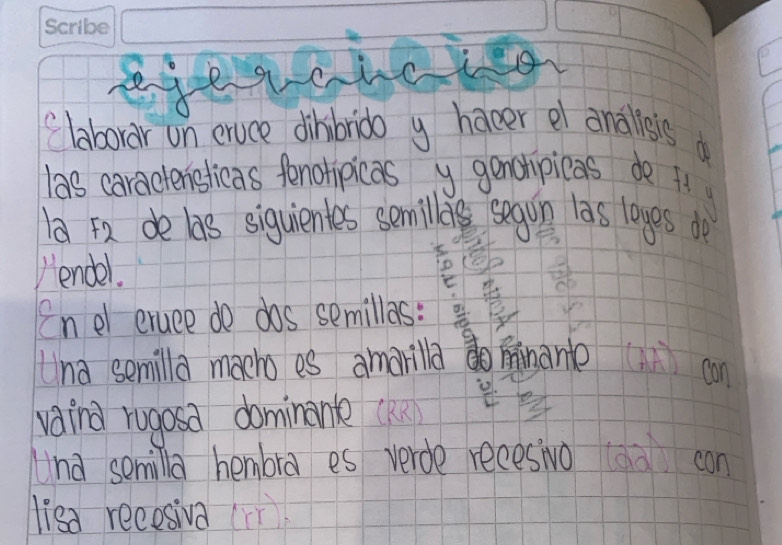 Scribe
ejercicio
Elaborar un cruce dihibrido y hacer el análisis de
las caracteristicas fenotipicas y genotipicas de F1 y
la F2 de las siguientes semillas según las leyes de
Mendel.
En el cruce de dos semillas:
Una semilla macho es amarilla dominante (AA) con
vaina rugosa dominante (RR)
Una semilla hembra es verde recesivo (aa) con
lisa recesiva (rr).